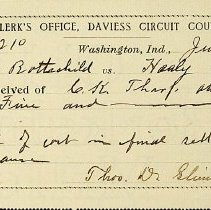 LERK'S OFFICE, DAVIESS CIRCUIT COU
210 Washington, Ind., Ju
Rottschild vs. Healy
ceived of C. K. Tharp, at
Fine and
of cost in final sett
ause
Thos. D.